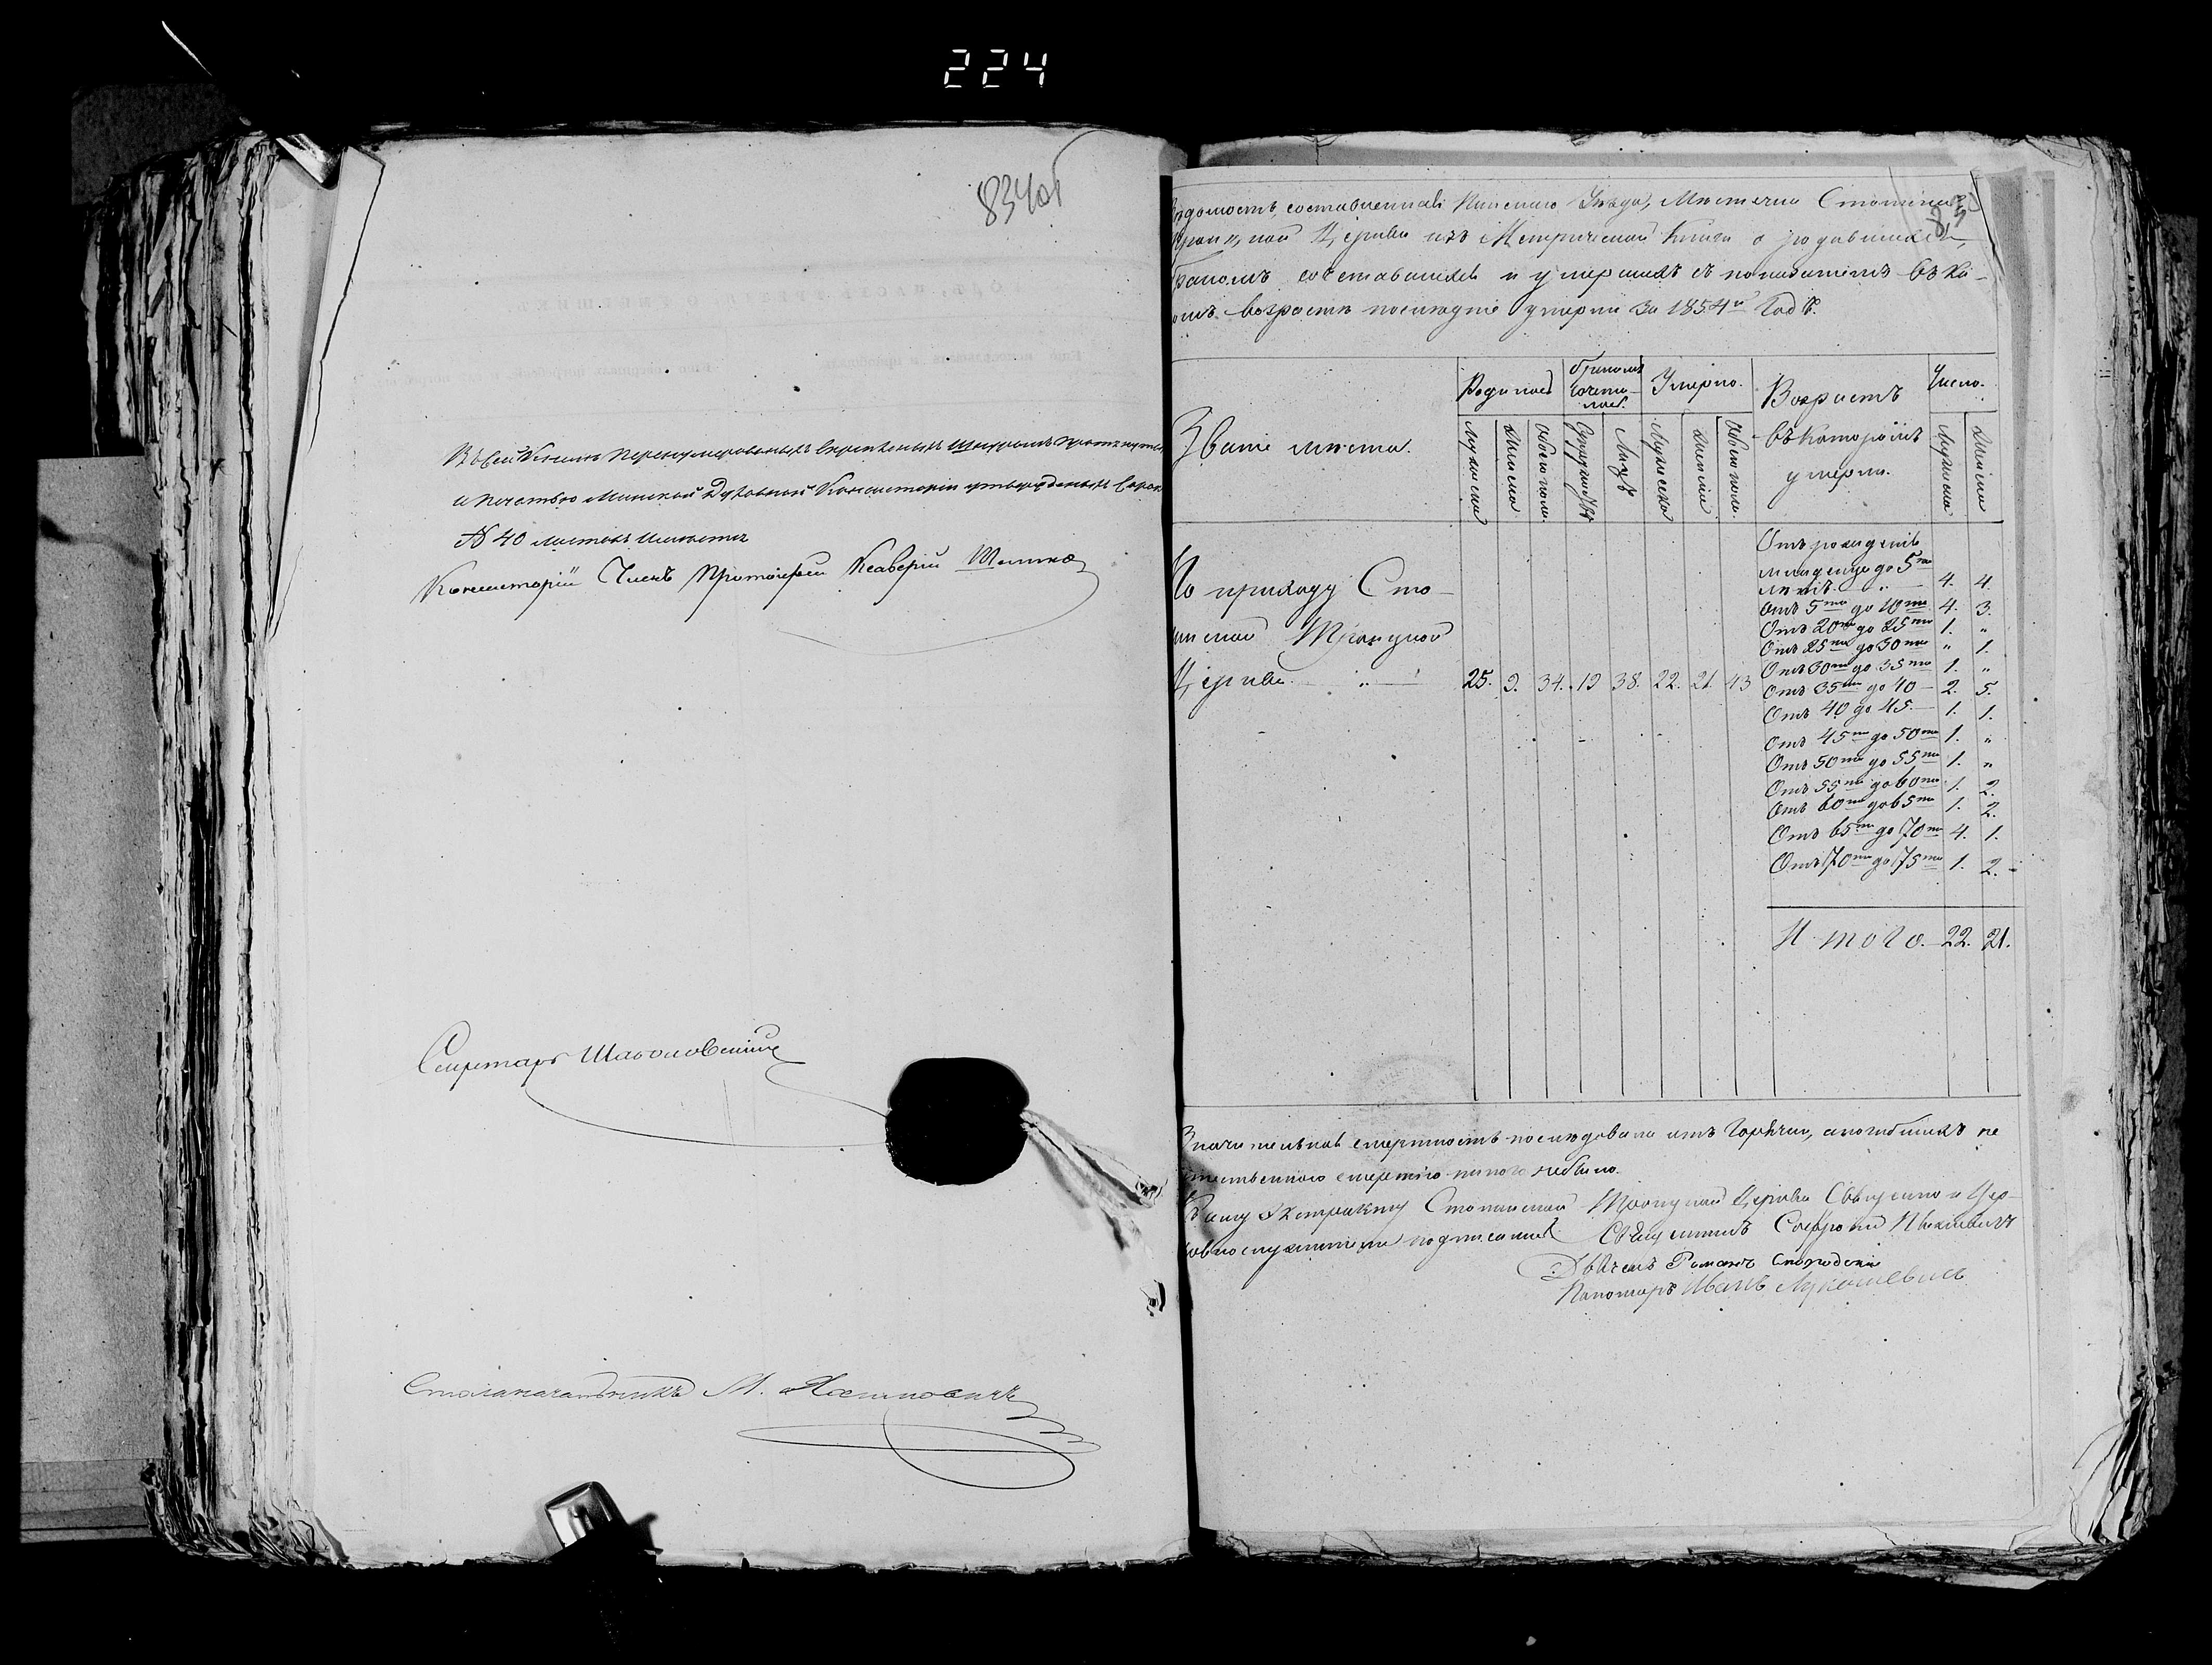 224
834об
Въ сей Книгѣ перенумерованныхъ скрѣпленныхъ Шнуромъ
и печатью Минской Духовной Консисторіи утвержденныхъ Сорокъ
№ 40 листовъ имѣется
Консисторіи Членъ Протоіерей Ксаверій
Секретарь
Столоначальникъ М.
835
составленная Пинскаго Уѣзда, Мѣстечка
Церкви изъ Метрической Книги о родившихся,
бракомъ сочетавшихся и умершихъ съ показаніемъ въ ка-
комъ возрастѣ послѣдніе умерли за 1854й Годъ.
Званіе мѣста.
Родилось
Бракомъ сочета-лось.
Умерло.
Возрастъ въ которомъ умерли.
Число.
Мужеска
Женска
Обоего пола.
Лицъ
Мужеска
Женска
Обоего пола.
Мужеска
Женска
По приходу Сто-
Троицкой
Церкви. 25. 9. 34. 19 38. 22. 21. 43
Отъ рожденія
младенца до 5ти
лѣтъ. 4. 4.
Отъ 5ти до 10ти 4. 3.
Отъ 20ти до 25ти 1. "
Отъ 25ти до 30ти " 1.
Отъ 30ти до 35ти 1. "
Отъ 35ти до 40 — 2. 5.
Отъ 40 до 45. — 1. 1.
Отъ 45ти до 50ти 1. "
Отъ 50ти до 55ти 1. "
Отъ 55ти до 60ти 1. 2.
Отъ 60ти до 65ти 1. 2.
Отъ 65ти до 70ти 4. 1.
Отъ 70ти до 75ти 1. 2.
Итого. 22. 21.
Значительная смертность послѣдовала отъ Горячки, а погибшихъ не
естественною смертію никого небыло.
Троицкой Церкви Священно и Цер-
ковнослужители подписались Священникъ Софроній
Дьячекъ Романъ
Пономарь Иванъ Лукашевичъ